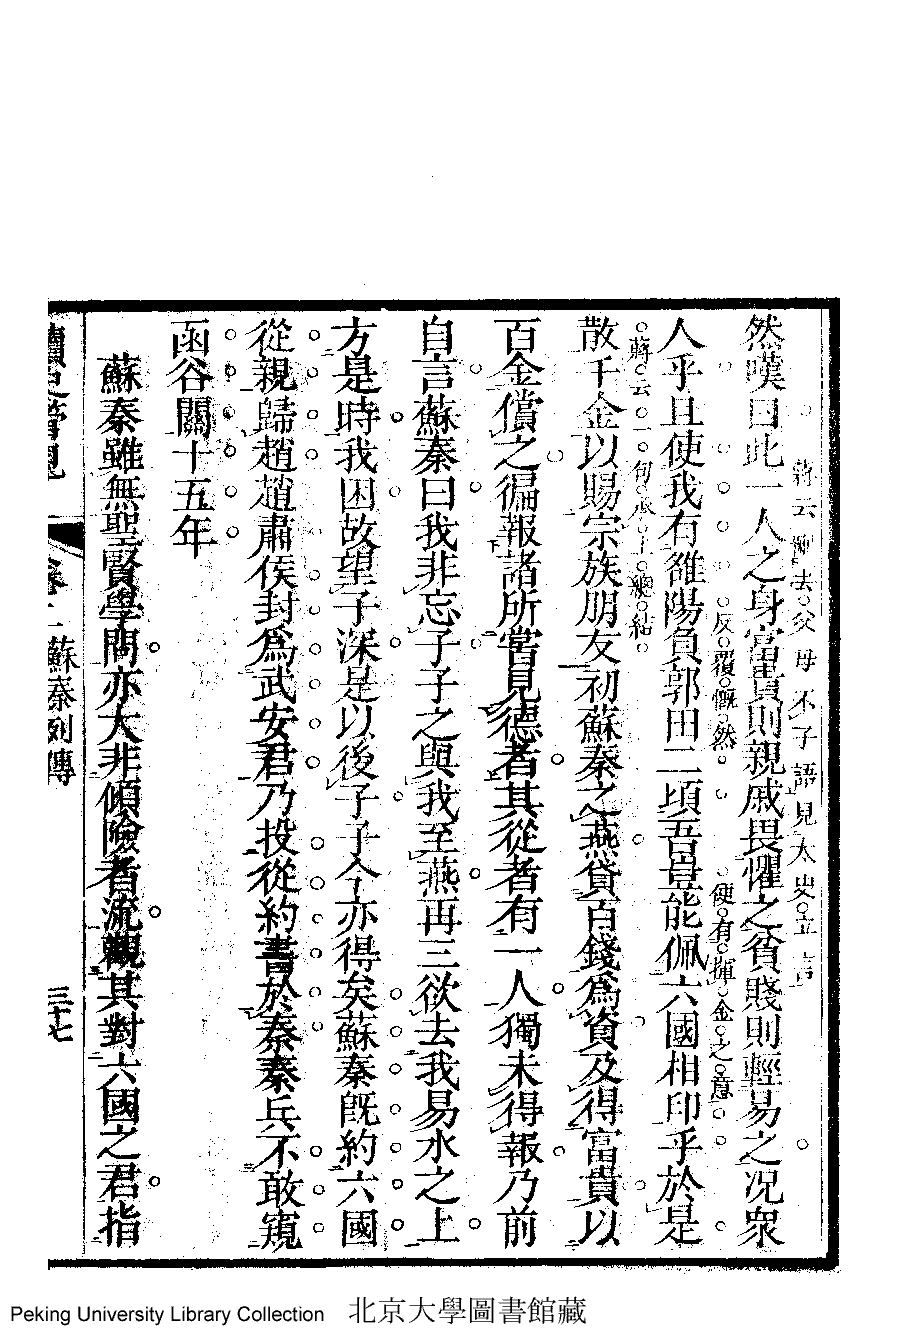 蔣云刪去父母不子語見太史立言
然嘆曰此一人之身富貴則親戚畏懼之貧賤則輕易之况衆
反覆慨然。 使有揮金之意
人乎且使我有雒陽負郭田二頃吾豈能佩六國相印乎於是
蔣云一句承上總結。
散千金以賜宗族朋友初蘇秦之燕貸百錢爲資及得富貴以
百金償之徧報諸所嘗見德者其從者有一人獨未得報乃前
自言蘇秦曰我非忘子子之與我至燕再三欲去我易水之上
方是時我困故望子深是以後子子今亦得矣蘇秦旣約六國
從親歸趙趙肅侯封爲武安君乃投從約書於秦秦兵不敢窺
函谷關十五年
蘇秦雖無聖賢學問亦大非傾險者流觀其對六國之君指
讀史管見 卷一 蘇秦列傳 三十七
Peking University Library Collection 北京大學圖書館藏